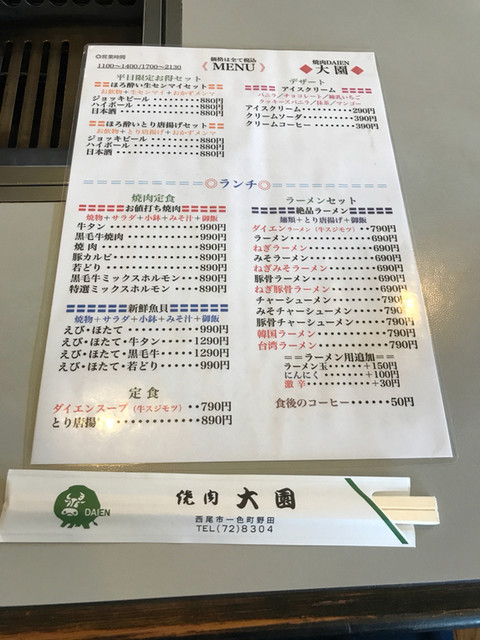 ◎営業時間
1100～1400/1700～2130
価格は全て税込
《 MENU 》
焼肉DAIEN
◆大園◆
平日限定お得セット
ほろ酔い生センマイセット
お飲物+生センマイ+おかずメンマ
ジョッキビール・・・・・・880円
ハイボール・・・・・・・・880円
日本酒・・・・・・・・・・880円
ほろ酔いとり唐揚げセット
お飲物+とり唐揚げ+おかずメンマ
ジョッキビール・・・・・・880円
ハイボール・・・・・・・・880円
日本酒・・・・・・・・・・880円
デザート
アイスクリーム
バニラ/チョコレート/練乳いちご
クッキーズバニラ/抹茶/マンゴー
アイスクリーム・・・・・・290円
クリームソーダ・・・・・・390円
クリームコーヒー・・・・・390円
◎ランチ◎
焼肉定食
お値打ち焼肉
焼物+サラダ+小鉢+みそ汁+御飯
牛タン・・・・・・・・・・990円
黒毛牛焼肉・・・・・・・・990円
焼肉・・・・・・・・・・・890円
豚カルビ・・・・・・・・・890円
若どり・・・・・・・・・・890円
黒毛牛ミックスホルモン・・・・890円
特選ミックスホルモン・・・・・890円
新鮮魚貝
焼物+サラダ+小鉢+みそ汁+御飯
えび・ほたて・・・・・・・990円
えび・ほたて・牛タン・・・1290円
えび・ほたて・黒毛牛・・・1290円
えび・ほたて・若どり・・・990円
定食
ダイエンスープ(牛スジモツ)・・790円
とり唐揚・・・・・・・・・890円
ラーメンセット
絶品ラーメン
麺類+とり唐揚げ+御飯
ダイエンラーメン(牛スジモツ)・・790円
ラーメン・・・・・・・・・690円
ねぎラーメン・・・・・・・690円
みそラーメン・・・・・・・690円
ねぎみそラーメン・・・・・690円
豚骨ラーメン・・・・・・・690円
ねぎ豚骨ラーメン・・・・・690円
チャーシューメン・・・・・790円
みそチャーシューメン・・・790円
豚骨チャーシューメン・・・790円
韓国ラーメン・・・・・・・790円
台湾ラーメン・・・・・・・790円
==ラーメン用追加==
ラーメン玉・・・・・+150円
にんにく・・・・・・+100円
激辛・・・・・・・・+30円
食後のコーヒー・・・・・50円
DAIEN
焼肉 大園
西尾市一色町野田
TEL(72)8304